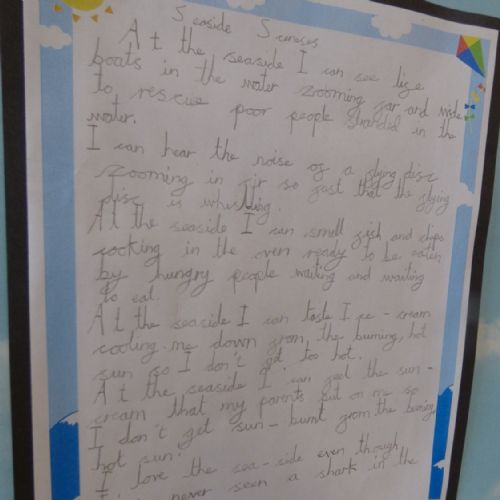 Seaside Sceneses
At the seaside I can see lige
boats in the water zooming far and wide
to rescue poor people stranded in the
water.
I can hear the noise of a flying disc
zooming in air so fast that the flying
disc is whistling.
At the seaside I can smell fish and chips
cooking in the oven ready to be eaten
by hungry people waiting and waiting
to eat.
At the seaside I can taste Ice-cream
cooling me down from, the burning, hot
sun so I don't get too hot.
At the seaside I can feel the sun-
cream that my parents put on me so
I don't get sun-burnt from the burning
hot sun.
I love the sea-side even though
never seen a shark in the